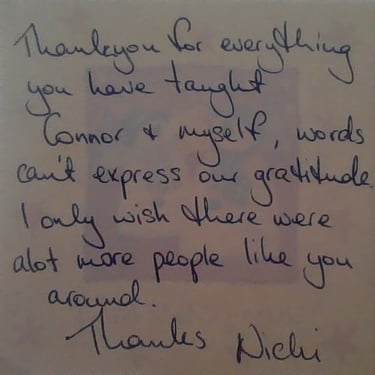 Thankyou for everything
you have taught
Connor & myself, words
can't express our gratitude.
I only wish there were
alot more people like you
around.
Thanks Nicki